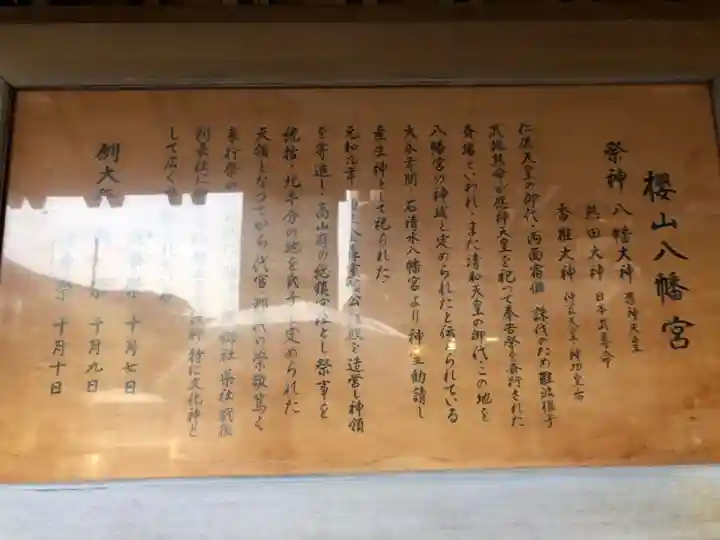 櫻山八幡宮
祭神 八幡大神 應神天皇
熱田大神 日本武尊命
香椎大神 仲哀天皇・神功皇后
仁徳天皇の御代・両面宿儺 誅伐のため難波根子
武振熊命が應神天皇を祀って奉告祭を斎行された
斎場といわれ、また清和天皇の御代・この地を
八幡宮の神域と定められたと伝えられている
大永年間・石清水八幡宮より神霊勧請し
産生神として祀られた
元和九年 公社殿を造営し神領
を寄進し・高山府の総鎮守として祭事を
統括・北半分の地を氏子と定められた
天領となってから代官 代の崇敬篤く
奉行祭 郷社 県社 戦後
別表社に 特に文化神と
して広く
例大祭 祭 十月七日
祭 十月九日
祭 十月十日